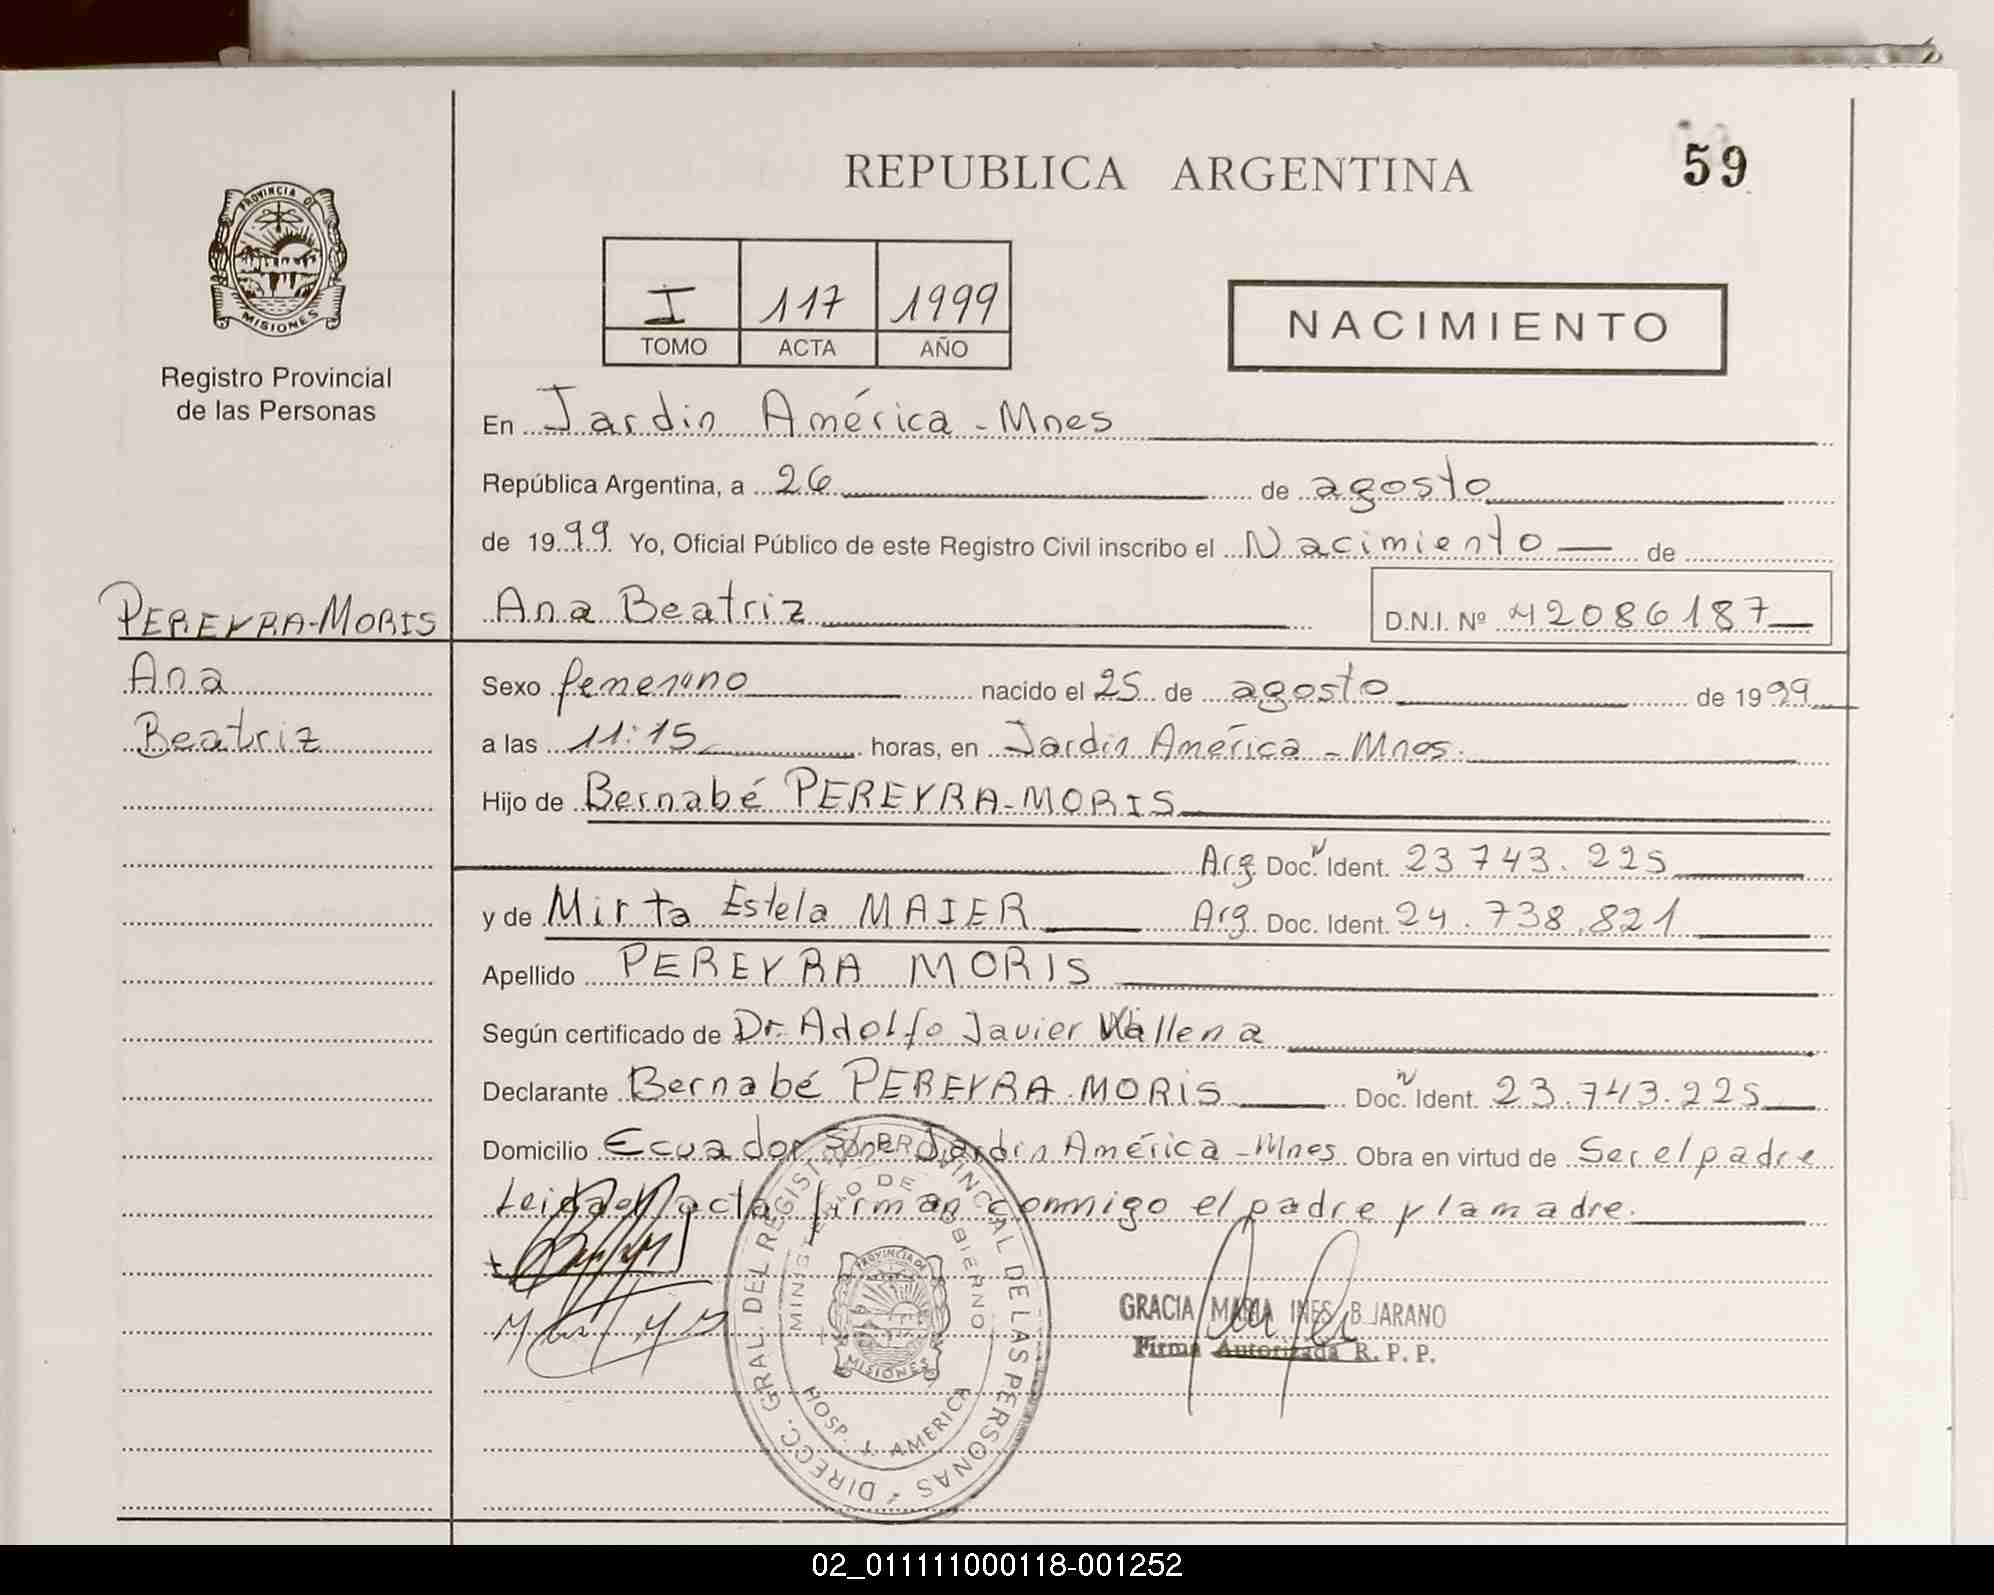 REPUBLICA ARGENTINA
59
PROVINCIA DE
MISIONES
Registro Provincial
de las Personas
I 117 1999
TOMO ACTA AÑO
NACIMIENTO
En Jardin América - Mnes
República Argentina, a 26 de agosto
de 1999 Yo, Oficial Público de este Registro Civil inscribo el Nacimiento de
PEREYRA-MORIS
Ana Beatriz D.N.I. Nº 42086187
Ana
Beatriz
Sexo femenino nacido el 25 de agosto de 1999
a las 11:15 horas, en Jardin América - Mnes.
Hijo de Bernabé PEREYRA-MORIS
Arg Doc. Ident. 23.743.225
y de Mirta Estela MAIER Arg. Doc. Ident. 24.738.821
Apellido PEREYRA MORIS
Según certificado de Dr. Adolfo Javier Wallena
Declarante Bernabé PEREYRA-MORIS Doc. Ident. 23.743.225
Domicilio Ecuador Jardin América - Mnes Obra en virtud de Ser el padre
Leida el acta firman conmigo el padre y la madre.
DIRECC. GRAL. DEL REGISTRO PROVINCIAL DE LAS PERSONAS
MINISTERIO DE GOBIERNO
PROVINCIA DE
MISIONES
HOSP. J. AMERICA
GRACIA MARIA INES BEJARANO
Firma Autorizada R. P. P.
02_011111000118-001252